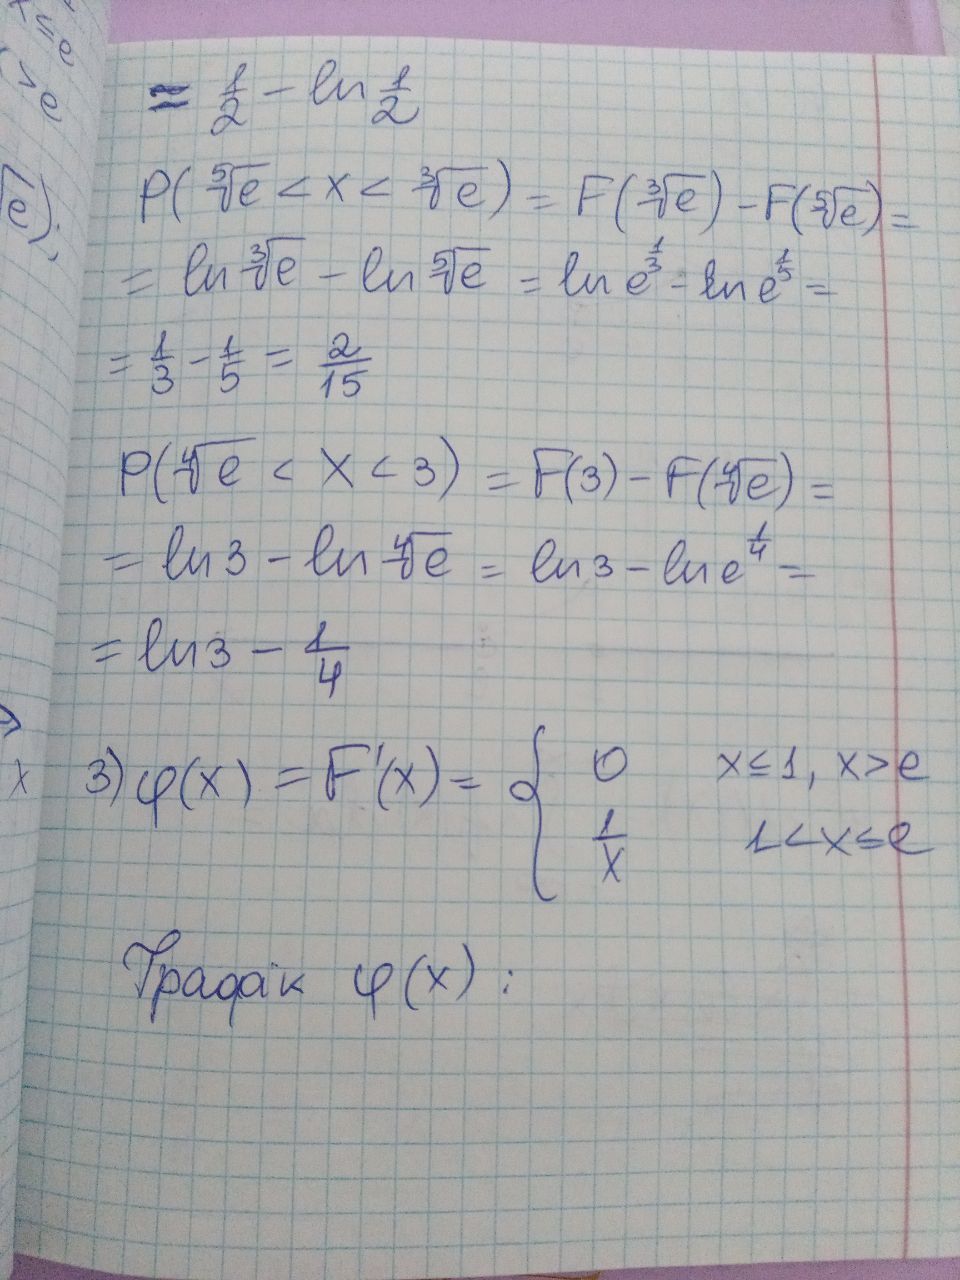 x≤e
>e
√e);
x
= 1/2 - ln 1/2
P(⁵√e < x < ³√e) = F(³√e) - F(⁵√e) =
= ln ³√e - ln ⁵√e = ln e^(1/3) - ln e^(1/5) =
= 1/3 - 1/5 = 2/15
P(⁴√e < x < 3) = F(3) - F(⁴√e) =
= ln 3 - ln ⁴√e = ln 3 - ln e^(1/4) =
= ln 3 - 1/4
3) φ(x) = F'(x) = { 0 x≤1, x>e
1/x 1<x≤e
Графік φ(x) :